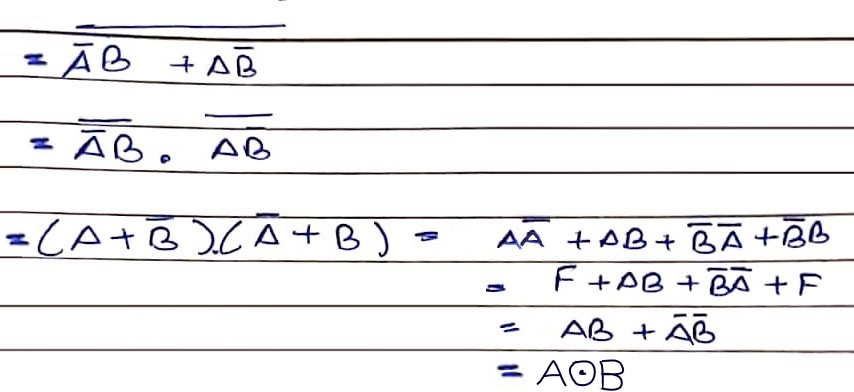 = \overline{\bar{A}B + A\bar{B}}
= \overline{\bar{A}B} . \overline{A\bar{B}}
= (A + \bar{B}).(\bar{A} + B) = A\bar{A} + AB + \bar{B}\bar{A} + \bar{B}B
= F + AB + \bar{B}\bar{A} + F
= AB + \bar{A}\bar{B}
= A⊙B